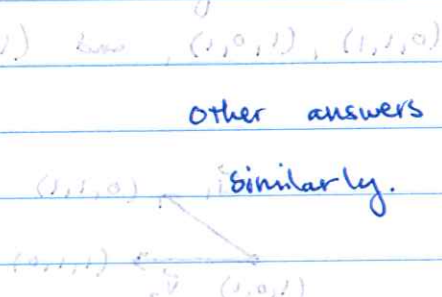 (1,0,1), (1,1,0)
other answers
(1,1,0)
similarly.
(0,1,1)
(1,0,1)